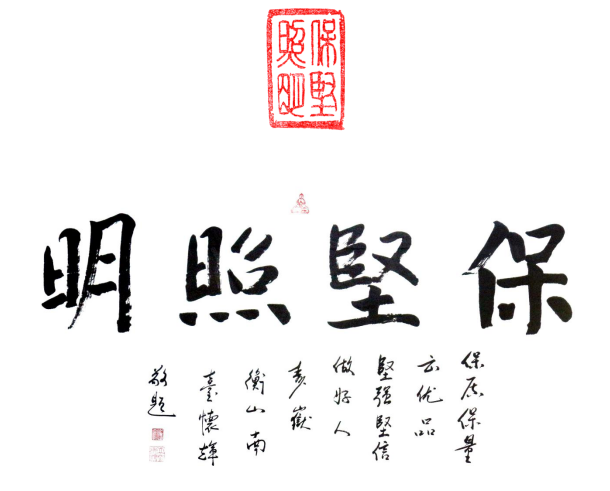 保堅
照明
保堅照明
保质保量
云优品
堅强堅信
做好人
寿嶽
衡山南
臺懷輝
敬題